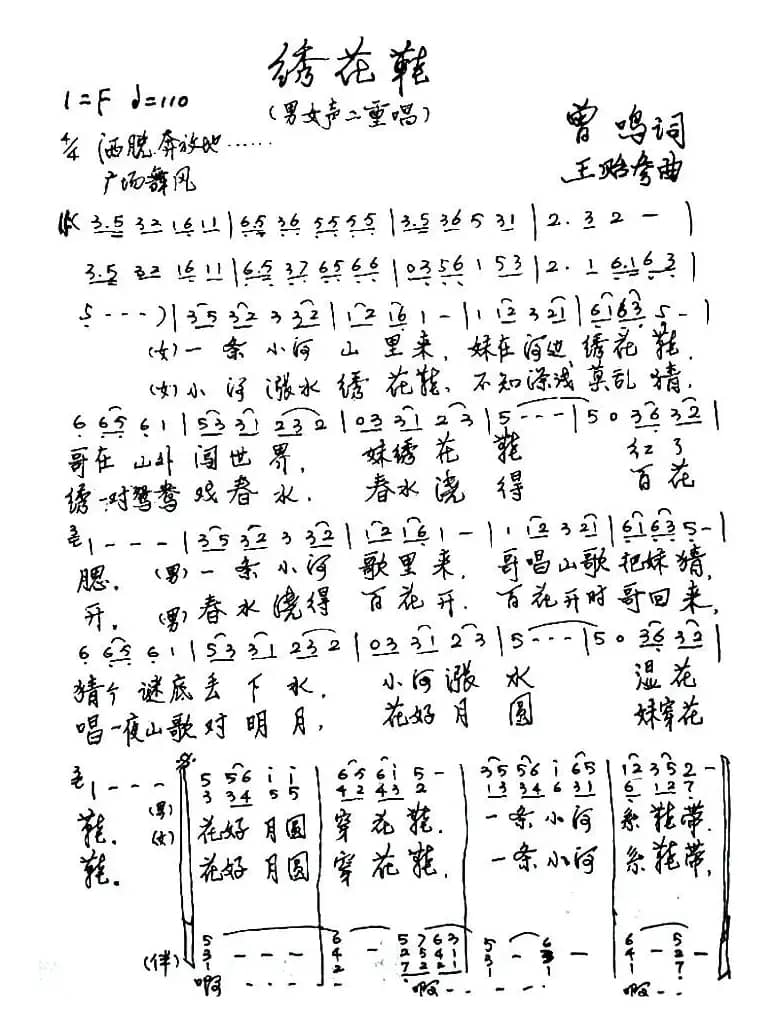 绣花鞋
1=F ♩=110
(男女声二重唱)
4/4 洒脱奔放地……
曾鸣词
广场舞风
王贻彦曲
(3.5 32 16 11 | 6.5 36 55 55 | 3.5 36 5 31 | 2. 3 2 - |
3.5 32 16 11 | 6.5 37 65 66 | 03 56 1 53 | 2. 1 6.1 63 |
5 - - -) | 35 32 3 32 | 12 16 1 - | 1 12 3 21 | 61 63 5 - |
(女)一条小河山里来，妹在河边绣花鞋，
(女)小河涨水绣花鞋、不知深浅莫乱猜，
6 65 6 1 | 53 31 23 2 | 03 31 2 3 | 5 - - - | 5 0 36 32 |
哥在山外闯世界， 妹绣花鞋 红了
绣一对鸳鸯戏春水， 春水浇得 百花
1 - - - | 35 32 3 32 | 12 16 1 - | 1 12 3 21 | 61 63 5 - |
腮。(男)一条小河歌里来，哥唱山歌把妹猜，
开。(男)春水浇得百花开，百花开时哥回来，
6 65 6 1 | 53 31 23 2 | 03 31 2 3 | 5 - - - | 5 0 36 32 |
猜个谜底丢下水， 小河涨水 湿花
唱一夜山歌对明月， 花好月圆 妹穿花
1 - - - 5 56 i i | 65 6i 5 - | 35 56 i 65 | 12 35 2 - |
3 34 5 5 | 42 43 2 | 13 34 6 31 | 6 12 7
鞋。(男)花好月圆穿花鞋，一条小河系鞋带，
鞋。(女)花好月圆穿花鞋，一条小河系鞋带，
5 - - - | 6 - 5 7 6 3 | 5 - 6 - | 6 - 5 -
(伴) 3 4 2 5 4 1 3 3 4 2
1 2 7 2 2 1 1 1 1 7
啊- - - - 啊- - - - 啊- -